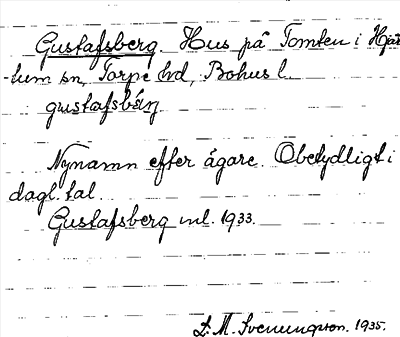 Gustafsberg. Hus på Tomten i Hjär
-tum sn, Torpe hd, Bohus l.
gustafsbärj
Nynamn efter ägare. Obetydligt i
dagl. tal
Gustafsberg ml. 1933.
L. M. Svenungsson. 1935.